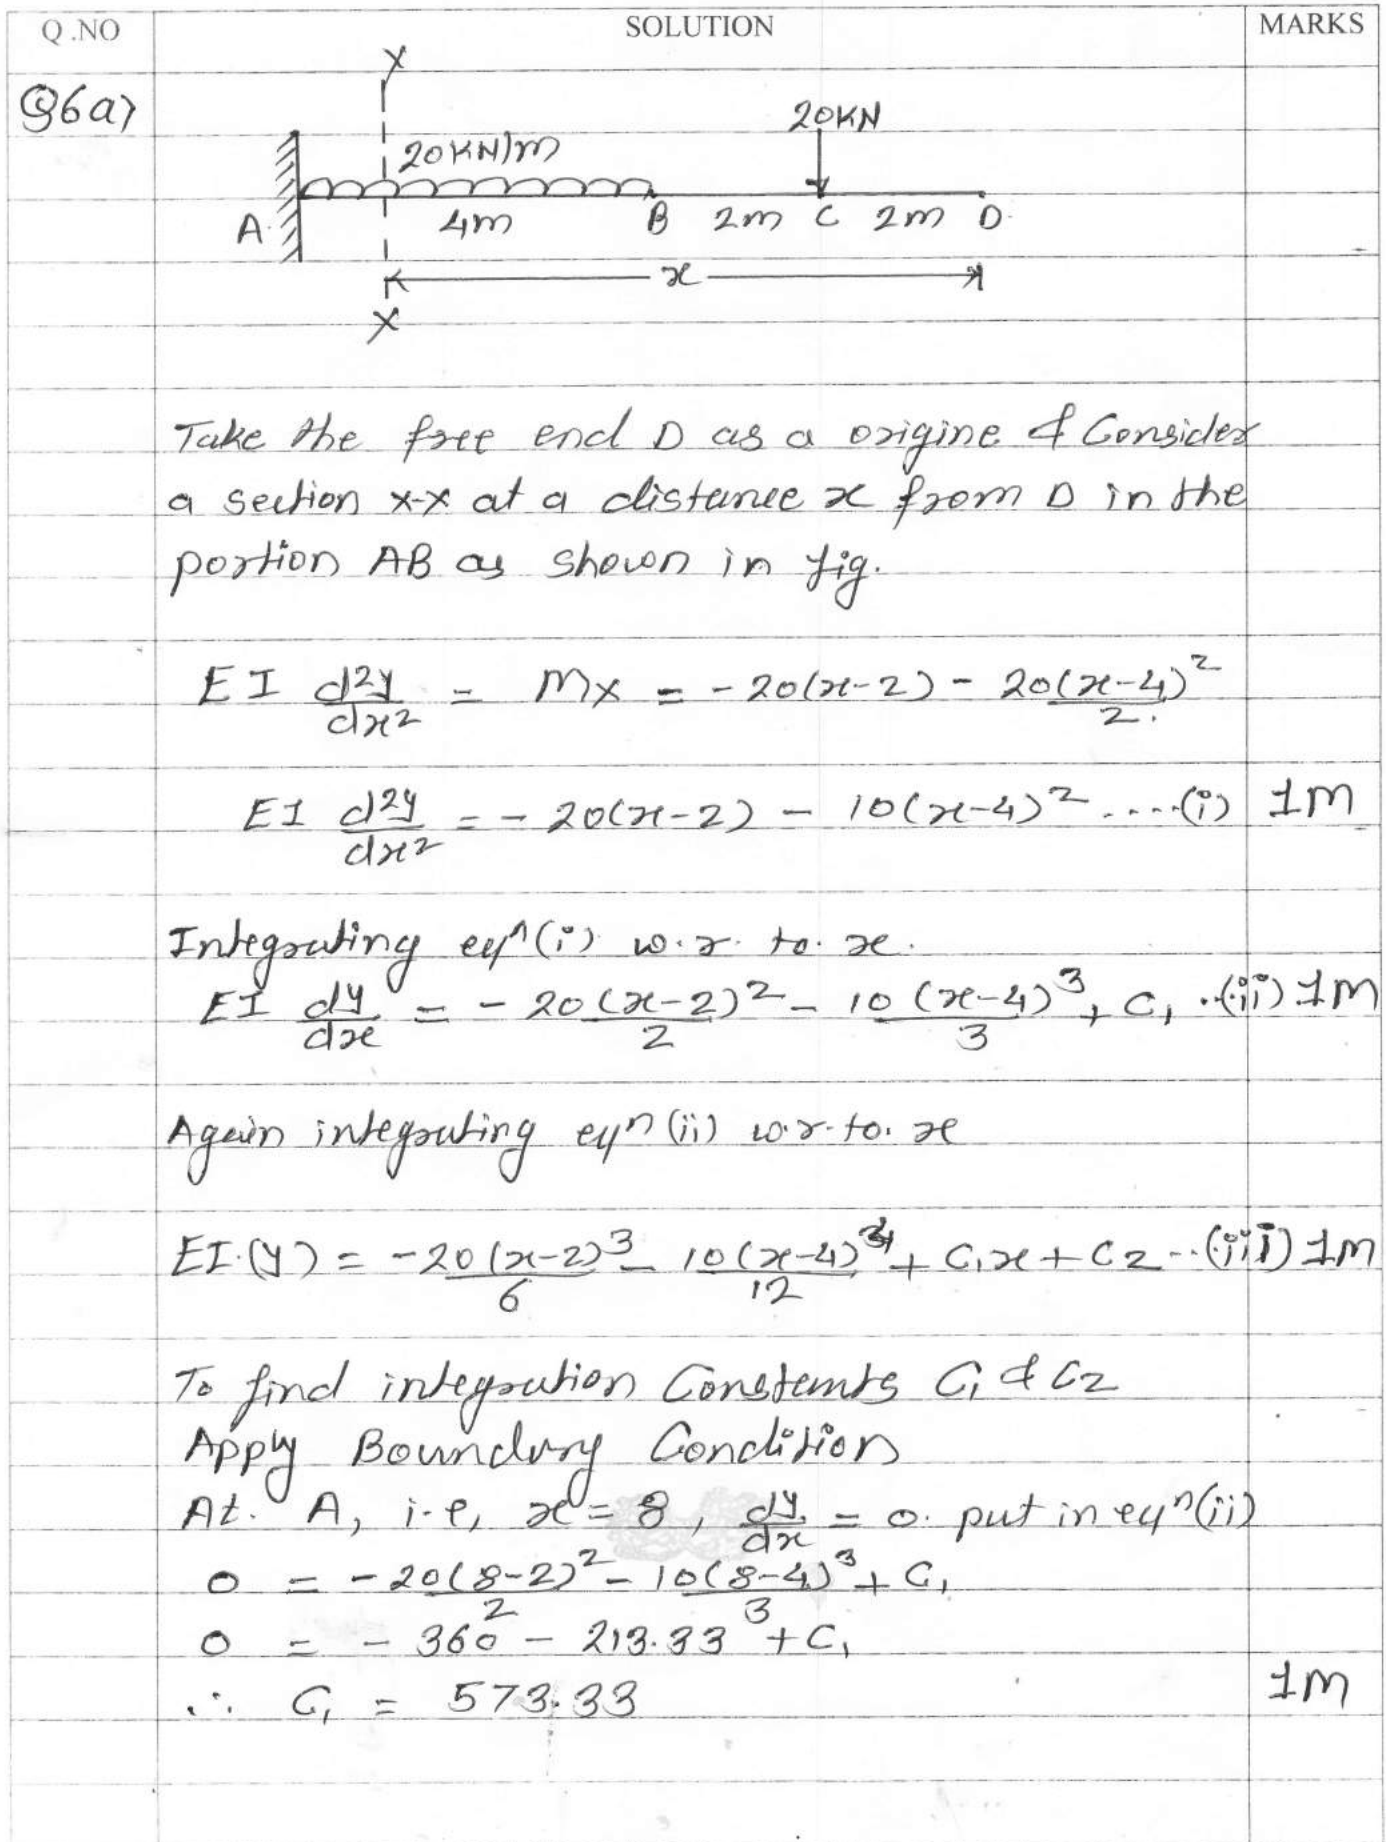 Q.NO SOLUTION MARKS
Q6a)
X
20KN
20KN/m
A. 4m B 2m C 2m D.
x
X
Take the free end D as a origine & Consider
a section x-x at a distance x from D in the
portion AB as shown in fig.
EI d²y/dx² = Mx = -20(x-2) - 20(x-4)²/2.
EI d²y/dx² = - 20(x-2) - 10(x-4)² ....(i) 1M
Integrating eqⁿ(i) w.r. to. x.
EI dy/dx = - 20(x-2)²/2 - 10(x-4)³/3 + C₁ ..(ii) 1M
Again integrating eqⁿ(ii) w.r.to. x
EI.(y) = -20(x-2)³/6 - 10(x-4)⁴/12 + C₁x + C₂ --(iii) 1M
To find integration Constants C₁ & C₂
Apply Boundary Condition
At. A, i.e, x = 8, dy/dx = 0. put in eqⁿ(ii)
0 = -20(8-2)²/2 - 10(8-4)³/3 + C₁
0 = - 360 - 213.33 + C₁
∴ C₁ = 573.33 1M